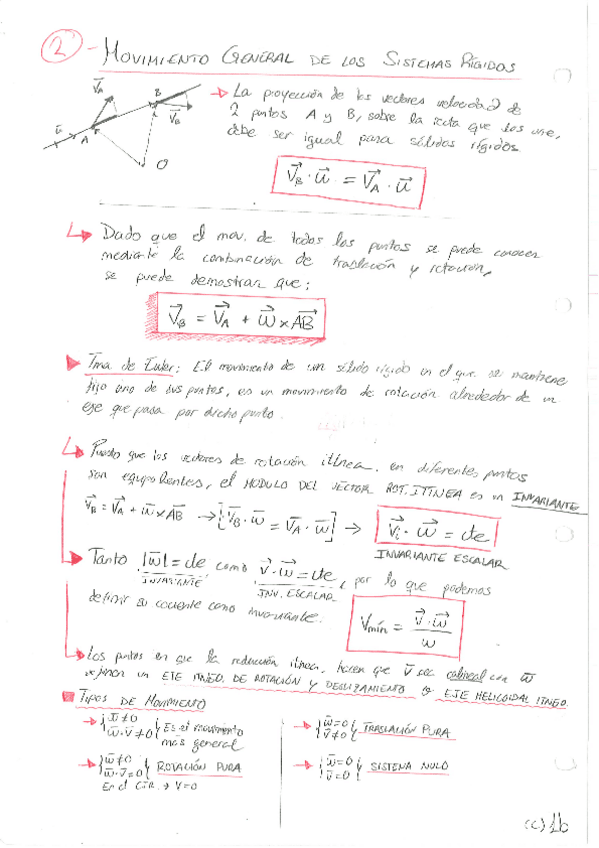 2 - MOVIMIENTO GENERAL DE LOS SISTEMAS RÍGIDOS
V⃗A B V⃗B u⃗ A O
→ La proyección de los vectores velocidad de
2 puntos A y B, sobre la recta que los une,
debe ser igual para sólidos rígidos
V⃗B · u⃗ = V⃗A · u⃗
Dado que el mov. de todos los puntos se puede conocer
mediante la combinación de traslación y rotación,
se puede demostrar que:
V⃗B = V⃗A + ω⃗ × AB⃗
Tma. de Euler: El movimiento de un sólido rígido en el que se mantiene
fijo uno de sus puntos, es un movimiento de rotación alrededor de un
eje que pasa por dicho punto.
Puesto que los vectores de rotación itínea. en diferentes puntos
son equipolentes, el MODULO DEL VECTOR ROT. ITINEA es un INVARIANTE
V⃗B = V⃗A + ω̅ × AB⃗ → [V̅B · ω̅ = V̅A · ω̅] → v⃗i · ω⃗ = cte
INVARIANTE ESCALAR
Tanto |ω̅| = cte como v⃗ · ω̅ = cte, por lo que podemos
INVARIANTE INV. ESCALAR
definir su cociente como invariante. Vmín = v⃗ · ω⃗ / ω
Los puntos en que la reducción itínea, hacen que v̅ sea colineal con ω̅
un EJE ITNEO. DE ROTACIÓN Y DESLIZAMIENTO o EJE HELICOIDAL ITNEO.
TIPOS DE MOVIMIENTO
→ { ω̅≠0 ω̅·v̅≠0 } Es el movimiento
más general
→ { ω̅≠0 ω̅·v̅=0 } ROTACIÓN PURA
En el CIR → V=0
→ { ω̅=0 v̅≠0 } TRASLACIÓN PURA
→ { ω̅=0 v̅=0 } SISTEMA NULO
(c) 1b